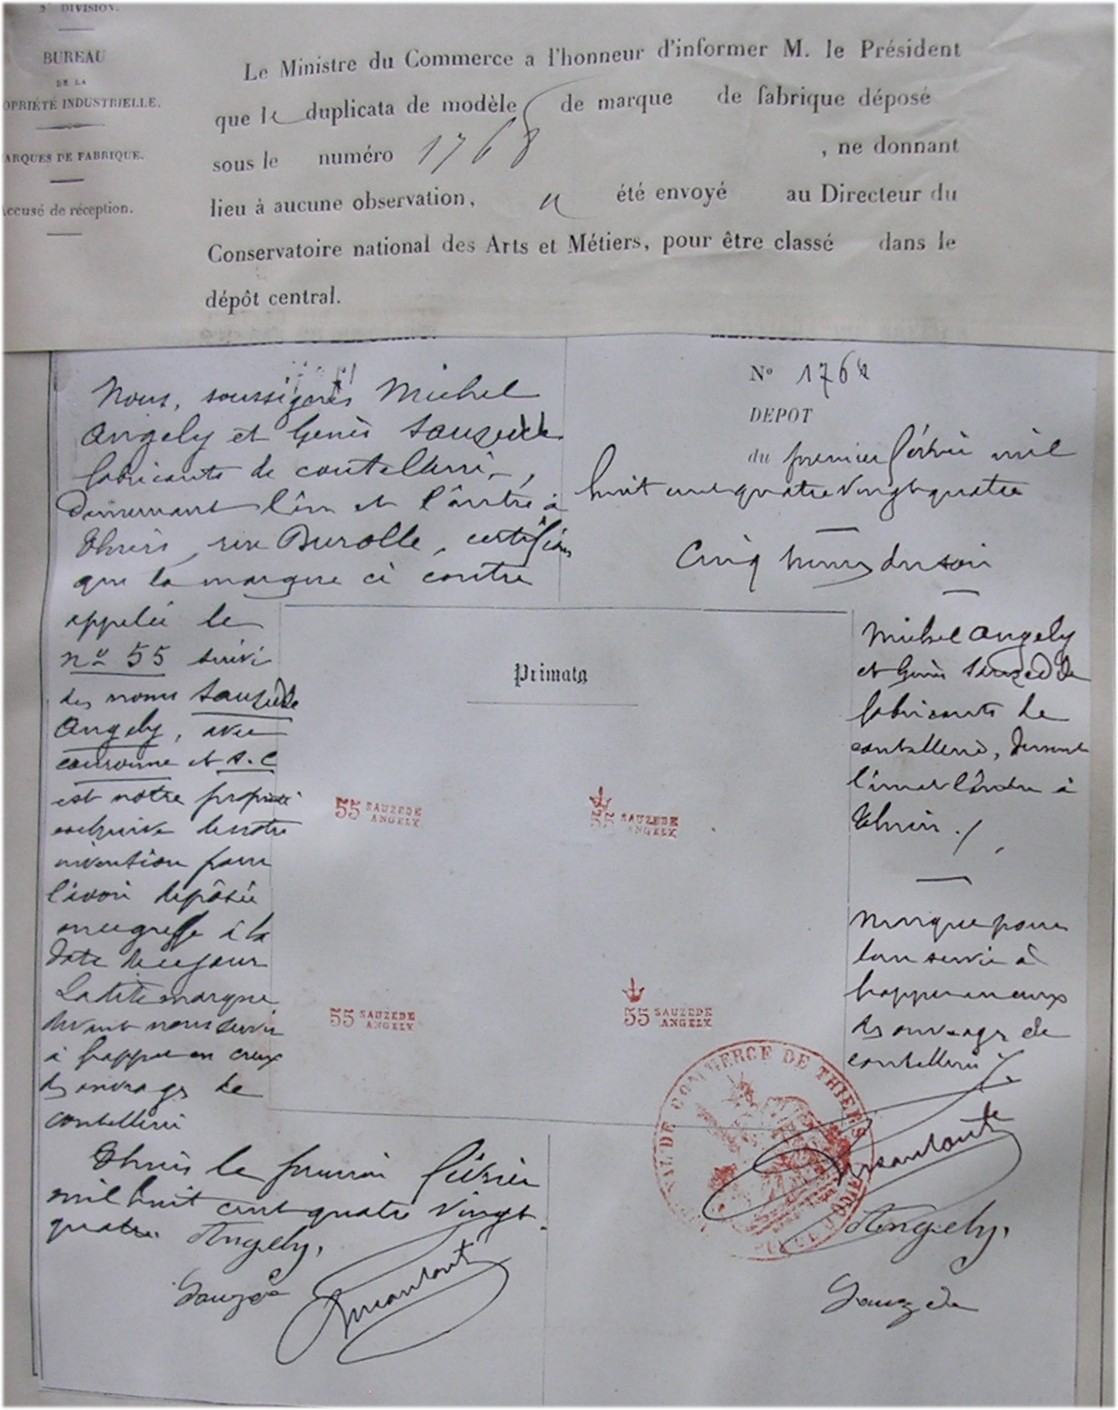 3e DIVISION.
BUREAU
DE LA
OPRIÉTÉ INDUSTRIELLE.
ARQUES DE FABRIQUE.
Accusé de réception.
Le Ministre du Commerce a l'honneur d'informer M. le Président
que le duplicata de modèle de marque de fabrique déposé
sous le numéro 1768 , ne donnant
lieu à aucune observation, a été envoyé au Directeur du
Conservatoire national des Arts et Métiers, pour être classé dans le
dépôt central.
Nous, soussignés Michel
Angely et Genès Sauzedde
fabricants de coutellerie,
Demeurant l'un et l'autre à
Thiers, rue Durolle, certifions
que la marque ci contre
appelée le
nº 55 suivi
des noms Sauzedde
Angely, avec
couronne et A. C
est notre propriété
exclusive de notre
invention pour
l'avoir déposée
au greffe à la
date de ce jour
La dite marque
devant nous servir
à frapper en creux
des ouvrages de
coutellerie
Thiers le premier février
mil huit cent quatre vingt
quatre.
Angely,
Sauzède
Nº 1768
DEPOT
du premier février mil
huit cent quatre vingt quatre
cinq heures du soir
Primata
55 SAUZEDE
ANGELY
55 SAUZEDE
ANGELY
55 SAUZEDE
ANGELY
55 SAUZEDE
ANGELY
Michel Angely
et Genès Sauzedde
fabricants de
coutellerie, demeurant
l'un et l'autre à
Thiers./
Marque pour
leur servir à
frapper en creux
des ouvrages de
coutellerie
DE COMMERCE DE THIERS
Angely,
Sauzède